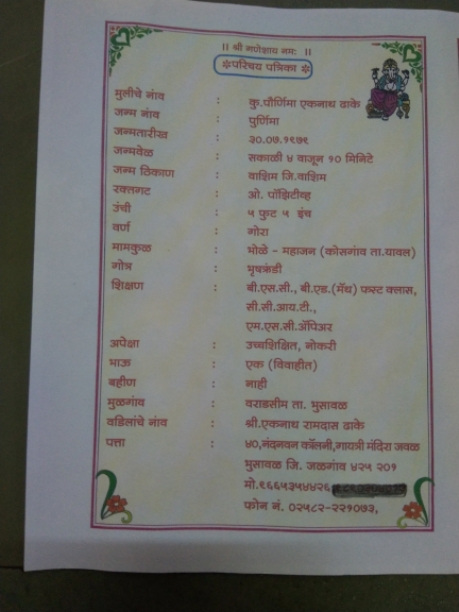 ।। श्री गणेशाय नमः ।।
❊परिचय पत्रिका❊
मुलीचे नांव : कु.पौर्णिमा एकनाथ ढाके
जन्म नांव : पुर्णिमा
जन्मतारीख : ३०.०७.१९७९
जन्मवेळ : सकाळी ४ वाजून १० मिनिटे
जन्म ठिकाण : वाशिम जि.वाशिम
रक्तगट : ओ. पॉझिटीव्ह
उंची : ५ फुट ५ इंच
वर्ण : गोरा
मामकुळ : भोळे - महाजन (कोसगांव ता.यावल)
गोत्र : भृषऋंडी
शिक्षण : बी.एस.सी., बी.एड.(मॅथ) फस्ट क्लास,
सी.सी.आय.टी.,
एम.एस.सी.ॲपिअर
अपेक्षा : उच्चशिक्षित, नोकरी
भाऊ : एक (विवाहीत)
बहीण : नाही
मुळगांव : वराडसीम ता. भुसावळ
वडिलांचे नांव : श्री.एकनाथ रामदास ढाके
पत्ता : ४०,नंदनवन कॉलनी,गायत्री मंदिरा जवळ
भुसावळ जि. जळगांव ४२५ २०१
मो.९६६५३५४४२६
फोन नं. ०२५८२-२२१०७३,